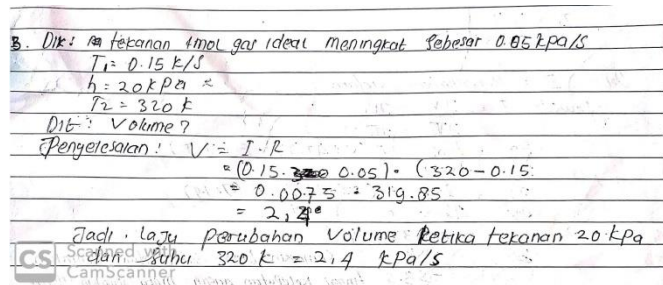 3. Dik: tekanan 1mol gas ideal meningkat sebesar 0.05 kPa/s
T1 = 0.15 K/S
h = 20 kPa
T2 = 320 K
Dit: Volume?
Penyelesaian: V = I.R
= (0.15. 0.05). (320-0.15.
= 0.0075 . 319.85
= 2,4
Jadi, laju perubahan Volume ketika tekanan 20 kPa
dan Suhu 320 K = 2,4 kPa/s
CS Scanned with
CamScanner